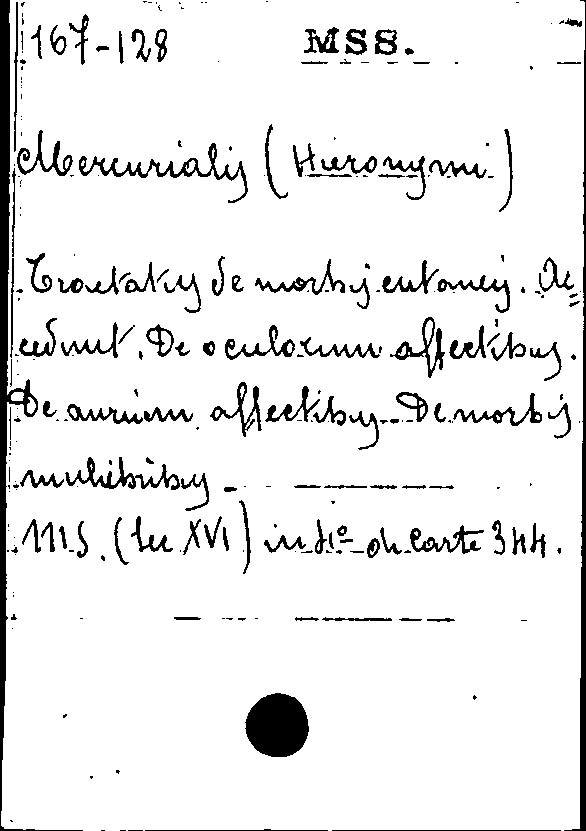 167-128 MSS.
Mercurialis (Hieronymi)
Tractatus de morbis cutaneis. Ac=
cedunt. De oculorum affectibus.
De aurium affectibus. De morbis
muliebribus.
MS. (Sec XVI) in 4º di Carte 344.